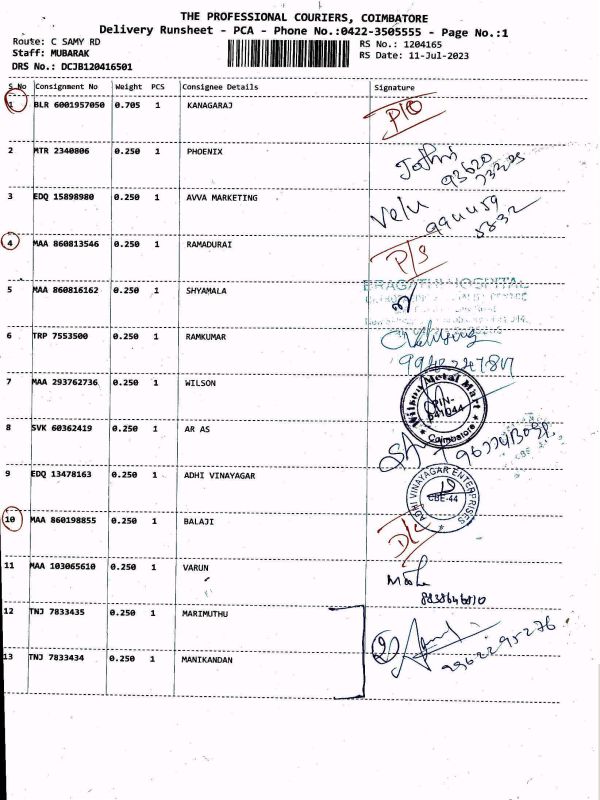 THE PROFESSIONAL COURIERS, COIMBATORE
Delivery Runsheet - PCA - Phone No.:0422-3505555 - Page No.:1
Route: C SAMY RD
Staff: MUBARAK
DRS No.: DCJB120416501
RS No.: 1204165
RS Date: 11-Jul-2023
S.No Consignment No Weight PCS Consignee Details Signature
1 BLR 6001957050 0.705 1 KANAGARAJ
2 MTR 2340806 0.250 1 PHOENIX
3 EDQ 15898980 0.250 1 AVVA MARKETING Velu
4 MAA 860813546 0.250 1 RAMADURAI P/S
5 MAA 860816162 0.250 1 SHYAMALA
PRAGATHI HOSPITAL
6 TRP 7553500 0.250 1 RAMKUMAR
7 MAA 293762736 0.250 1 WILSON
Wilson Metal Mart
PIN-
641044
Coimbatore
8 SVK 60362419 0.250 1 AR AS
9 EDQ 13478163 0.250 1 ADHI VINAYAGAR
ADHI VINAYAGAR ENTERPRISES
CBE-44
10 MAA 860198855 0.250 1 BALAJI
11 MAA 103065610 0.250 1 VARUN
12 TNJ 7833435 0.250 1 MARIMUTHU
2
13 TNJ 7833434 0.250 1 MANIKANDAN